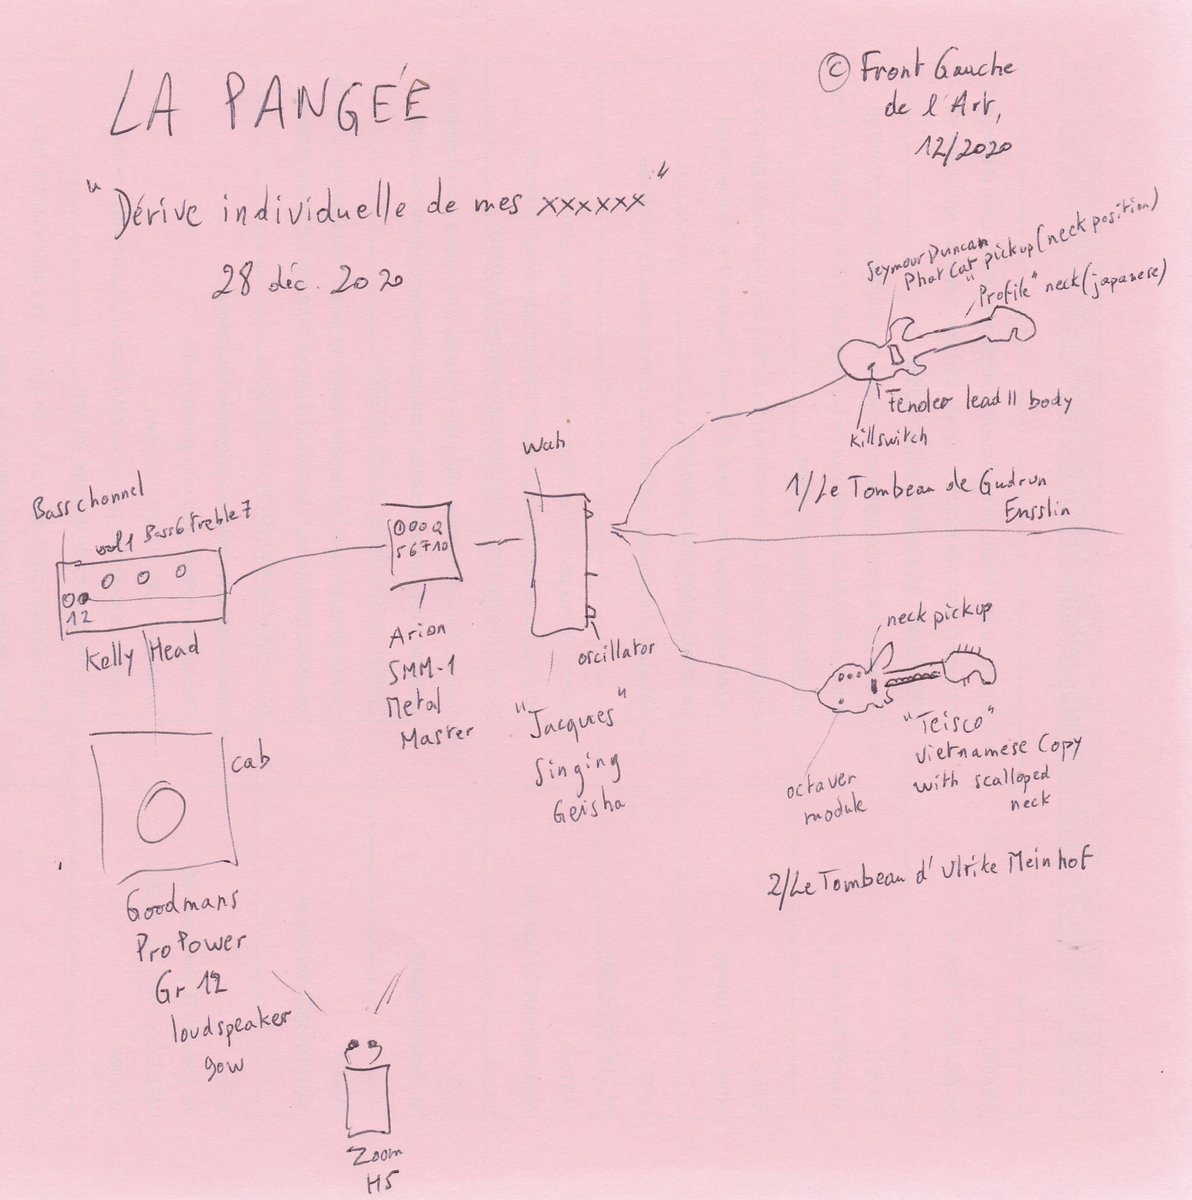 LA PANGÉE
© Front Gauche
de l'Art,
12/2020
"Dérive individuelle de mes xxxxxx"
28 déc. 2020
Seymour Duncan
Phat Cat pickup (neck position)
"Profile" neck (japanese)
Fender lead II body
killswitch
1/Le Tombeau de Gudrun
Ensslin
Wah
Bass channel
vol 1 Bass 6 treble 7
1 2
Kelly Head
5 6 7 10
Arion
SMM-1
Metal
Master
oscillator
"Jacques"
Singing
Geisha
neck pickup
"Teisco"
vietnamese copy
with scalloped
neck
octaver
module
2/Le Tombeau d'Ulrike Meinhof
cab
Goodmans
Pro Power
Gr 12
loudspeaker
90W
Zoom
H5